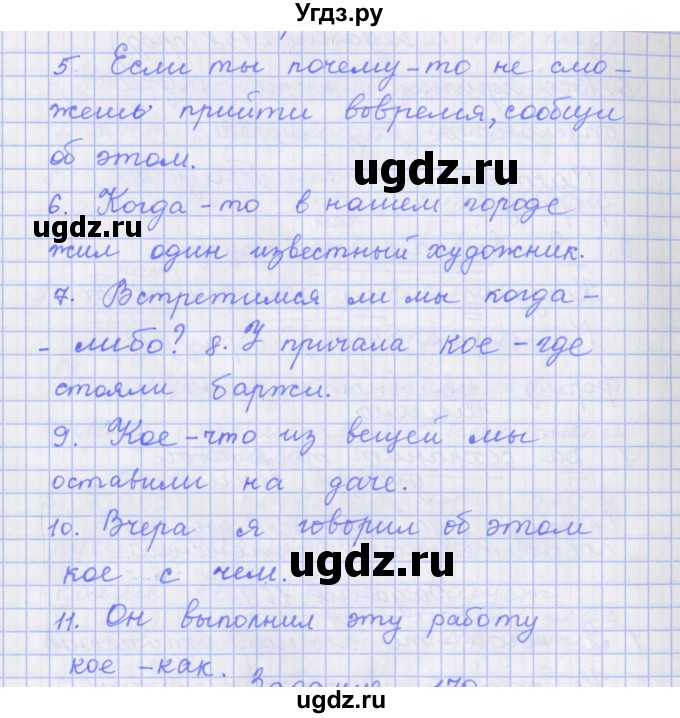 Угдз.ру
5 Если ты почему-то не смо-
жешь прийти вовремя, сообщи
об этом.
ugdz.ru
6. Когда-то в нашем городе
ugdz.ru
жил один известный художник.
7. Встретимся ли мы когда-
- либо? 8. У причала кое-где
ugdz.ru
стояли баржи.
9. Кое-что из вещей мы
оставили на даче.
10. Вчера я говорил об этом
кое с чем.
ugdz.ru
11. Он выполнил эту работу
кое-как.
Задание 170
ugdz.ru